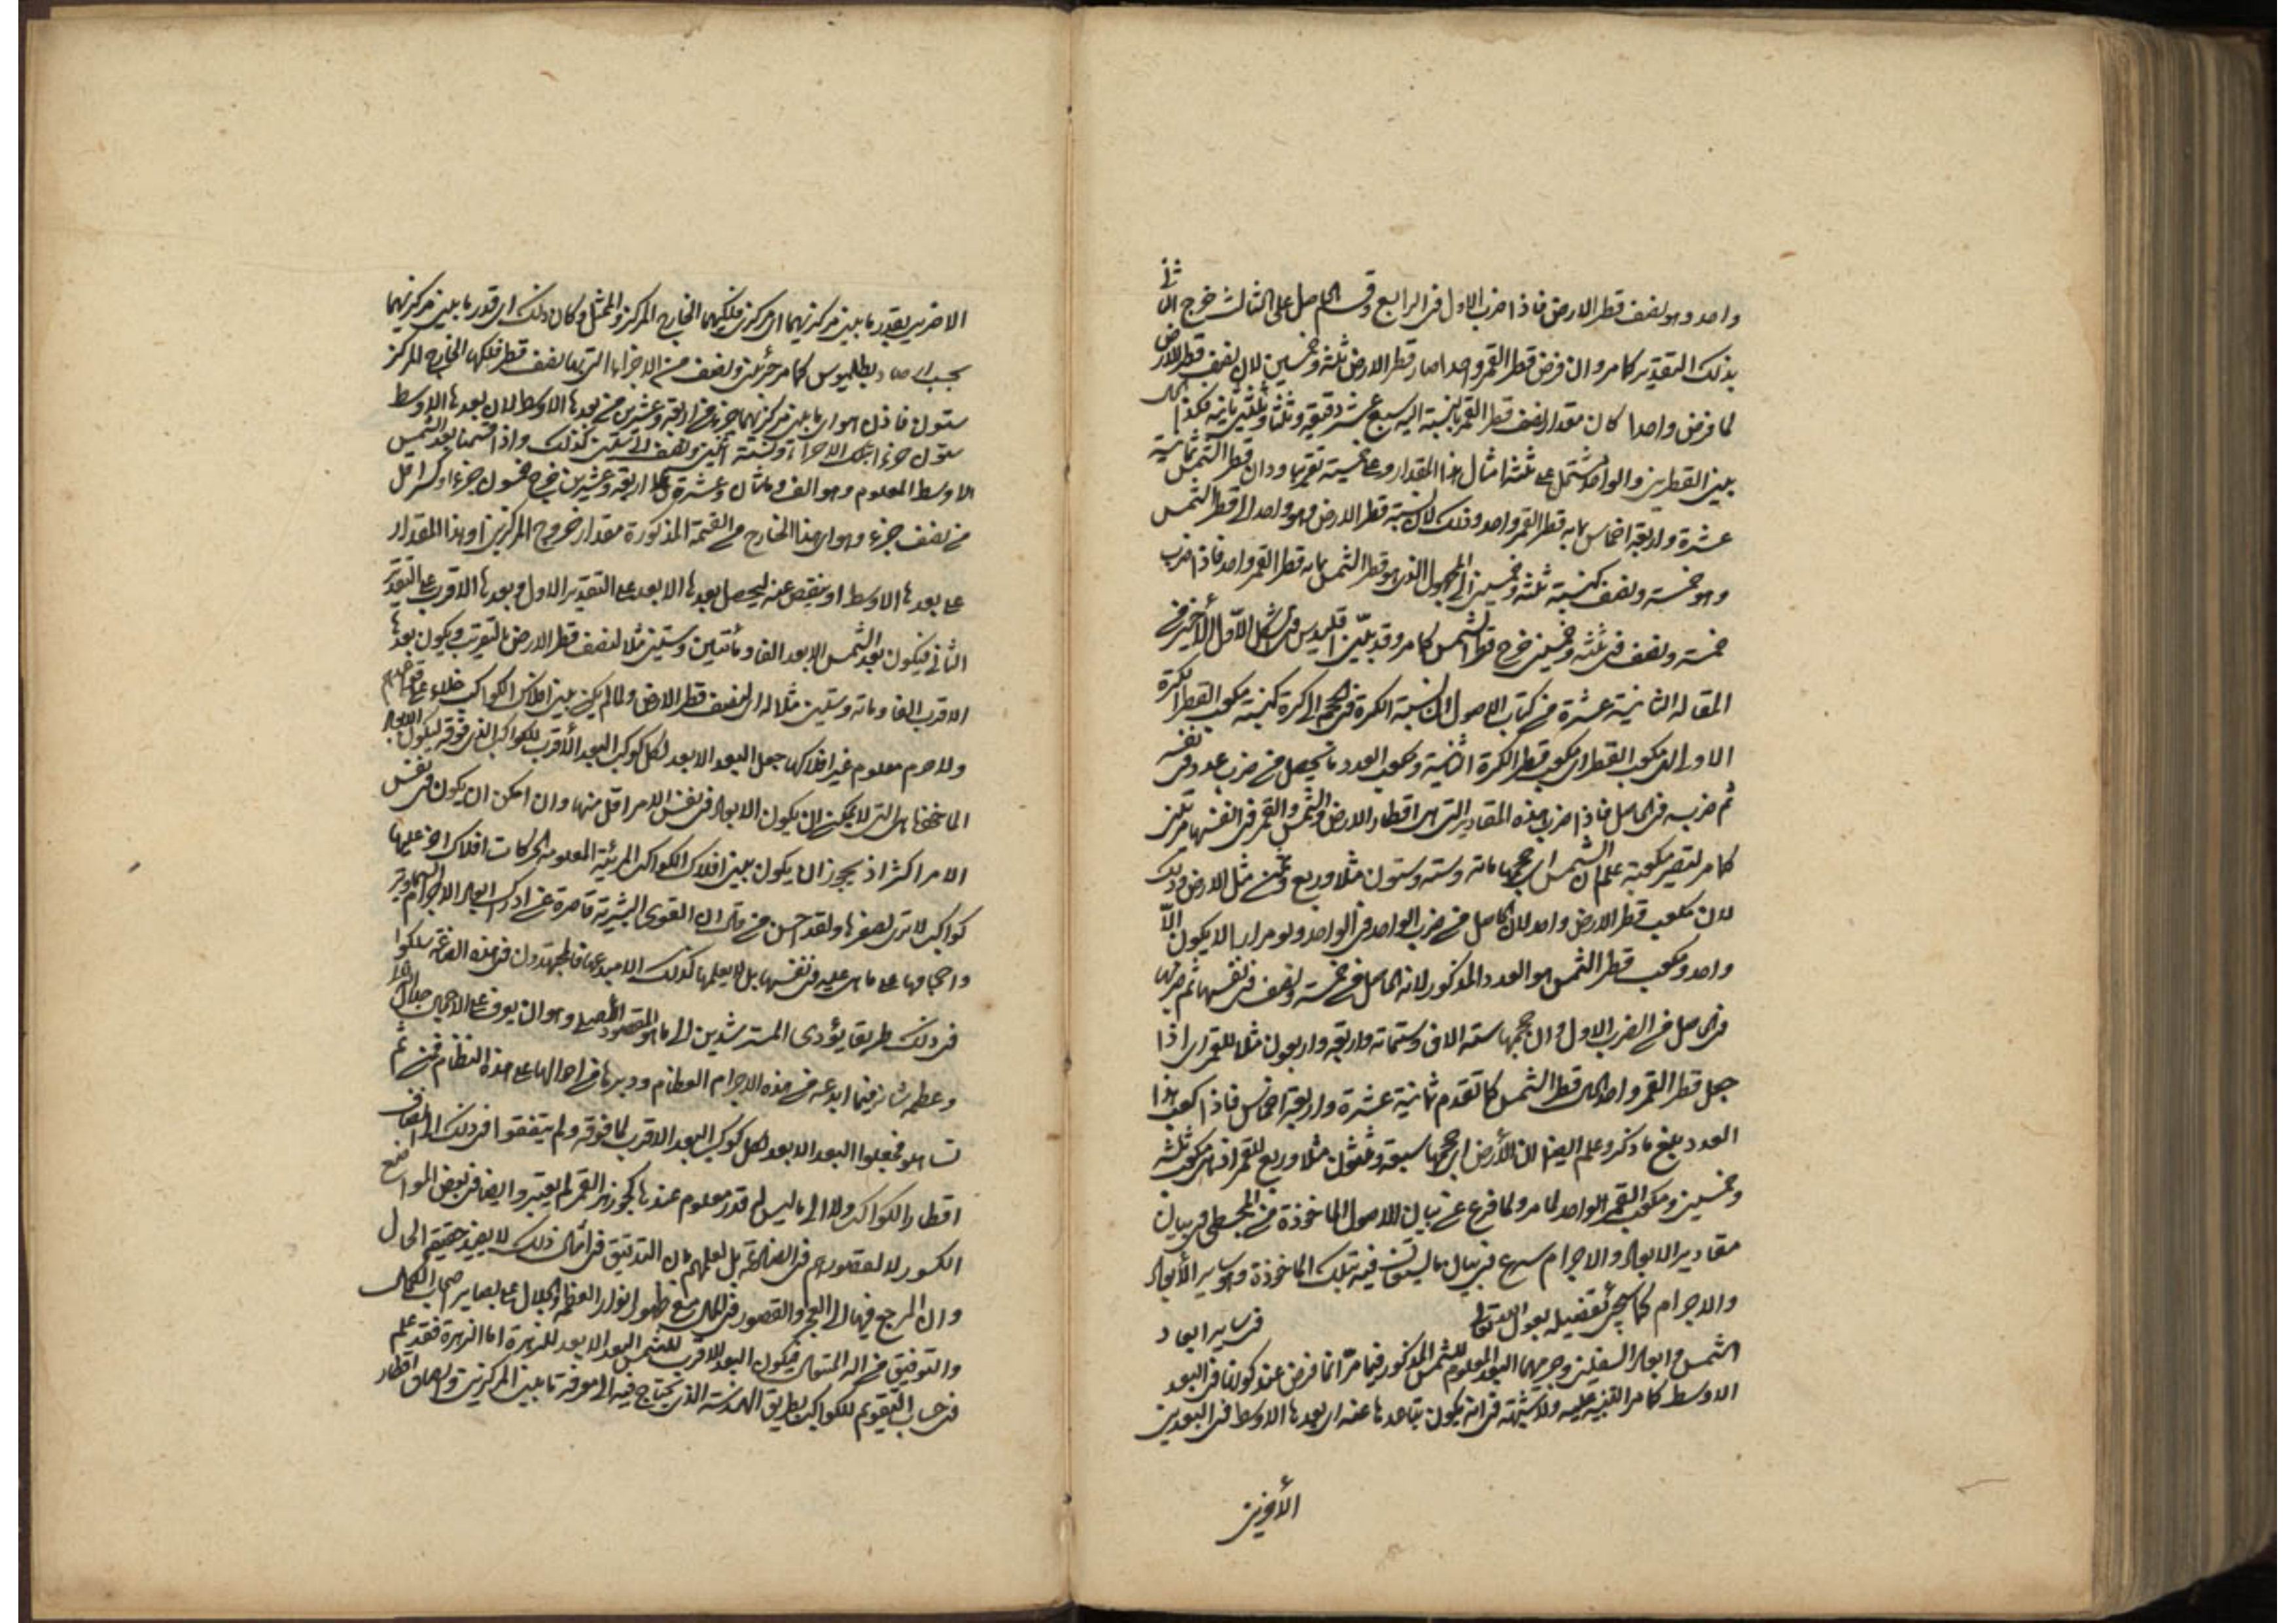 واحد وهو نصف قطر الارض فاذا ضرب الاول فى الرابع وقسم الحاصل على الثالث خرج الثانى
بذلك التقدير كما مر وان فرض قطر القمر واحدا صار قطر الارض ثلثة وخمسين لان نصف قطر الارض
لما فرض واحدا كان مقدار نصف قطر القمر بالنسبة اليه سبع عشر دقيقة وثلثا وثلثين ثانية فكذا الحال
بين القطرين والواحد يشتمل على ثلثة امثال هذا المقدار وعلى خمسيه تقريبا وان قطر الشمس ثمانية
عشرة واربعة اخماس ما به قطر القمر واحد وذلك لان نسبة قطر الارض وهو واحد الى قطر الشمس
وهو خمسة ونصف كنسبة ثلثة وخمسين الى المجهول الذى هو قطر الشمس بما به قطر القمر واحد فاذا ضرب
خمسة ونصف فى ثلثة وخمسين خرج قطر الشمس كما مر وقد بيّن اقليدس فى الشكل الاول الأخير من
المقالة الثانية عشرة من كتاب الاصول ان نسبة الكرة فى الحجم الى كرة كنسبة مكعب القطر الكرة
الاولى الى مكعب القطر اى مكعب قطر الكرة الثانية ومكعب العدد ما يحصل من ضرب عدد فى نفسه
ثم ضربه فى الحاصل فاذا ضرب هذه المقادير التى هى اقطار الارض والشمس والقمر فى انفسها مرتين
كما مر لتصير مكعبة علم ان الشمس اى حجمها مائة وستة وستون مثلا وربع وثمن مثل الارض وذلك
لان مكعب قطر الارض واحد لان الحاصل من ضرب الواحد فى الواحد ولو مرارا لا يكون الّا
واحد ومكعب قطر الشمس هو العدد المذكور لانه الحاصل من خمسة ونصف فى نفسها ثم ضربها
فى الحاصل من الضرب الاول وان حجمها ستة الاف وستمائة واربعة واربعون مثلا للقمر اى اذا
جعل قطر القمر واحدا كان قطر الشمس كما تقدم ثمانية عشرة واربعة اخماس فاذا كعب هذا
العدد بلغ ما ذكر وعلم ايضا ان الأرض اى حجمها سبعة وثلثون مثلا وربع للقمر اذ هى مكعب ثلثة
وخمسين ومكعب القمر الواحد لما مر ولما فرغ عن بيان الاصول المأخوذة من المجسطى فى بيان
مقادير الابعاد والاجرام سرع فى بيان ما ليستعان فيه بتلك المأخوذة وهو ساير الأبعاد
والاجرام كما سيجئ تفصيله بعون الله تعالى فى ساير ابعاد
الشمس وابعاد السفلين وجرمهما البعد المعلوم للشمس المذكور فيما مرّ انما فرض عند كونها فى البعد
الاوسط كما مر التنبيه عليه ولا شبهة فى انه يكون تباعدها عنه اى بعدها الاوسط فى البعدين
الأخرين
الاخرين بقدر ما بين مركزيهما اى مركزى فلكيهما الخارج المركز والممثل وكان ذلك اى قدر ما بين مركزيهما
بحسب ارصاد بطلميوس كما مر جزئين ونصف من الاجزاء التى بها نصف قطر فلكها الخارج المركز
ستون فاذن هو اى ما بين مركزيهما جزء من اربعة وعشرين من بعدها الاوسط لان بعدها الاوسط
ستون جزءا بتلك الاجزاء ونسبة اثنين ونصف الى ستين كذلك واذا قسمنا بعد الشمس
الاوسط المعلوم وهو الف ومائتان وعشرة على اربعة وعشرين خرج خمسون جزءا وكسر اقل
من نصف جزء وهو اى هذا الخارج من القسمة المذكورة مقدار خروج المركزين او هذا المقدار
على بعدها الاوسط او ينقص عنه ليحصل بعدها الابعد على التقدير الاول وبعدها الاقرب على التقدير
الثانى فيكون بعد الشمس الابعد الفا ومأتين وستين مثلا لنصف قطر الارض بالتقريب ويكون بعدها
الاقرب الفا ومائة وستين مثلا له اى لنصف قطر الارض ولما لم يكن بين افلاك الكواكب خلاء على قواعدهم
ولا جرم معلوم غير افلاكها جعل البعد الابعد لكل كوكب البعد الأقرب للكوكب الذى فوقه ليكون الابعاد
المأخوذة هى التى لا يمكن ان يكون الابعاد فى نفس الامر اقل منها وان امكن ان يكون فى نفس
الامر اكثر اذ يجوز ان يكون بين افلاك الكواكب المرئية المعلومة الحركات افلاك اخر عليها
كواكب لا ترى لصغرها ولقد احسن من قال ان القوى البشرية قاصرة عن ادراك ابعاد الاجرام السماوية
واحجامها على ما هى عليه فى نفسها بل لا يعلمها كذلك الا مبدعها فالمجتهدون فى هذه الصناعة سلكوا
فى ذلك طريقا يؤدى المسترشدين الى ما هو المقصود الأصلى وهو الوقوف على الاجمال جلال الله
وعظمة شانه فيما ابدعه من هذه الاجرام العظام ودبرها فى احوالها على هذه النظام فمن ثم
تساهلو فجعلوا البعد الابعد لكل كوكب البعد الاقرب لما فوقه ولم يتفقوا فى ذلك الى انصاف
اقطار الكواكب ولا الى ما ليس له قدر معلوم عندها كجوزهر القمر لم يعتبروا ايضا فى بعض المواضع
الكسور لا لقصورهم فى الصناعة بل لعلمهم بان التدقيق فى امثال ذلك لا يفيد حقيقة الحال
وان المرجع فيها الى العجز والقصور فى الحال مع ظهور انوار العظمة والجلال على بصاير اصحاب الكمال
والتوفيق من اله المتعال فيكون البعد الاقرب للشمس البعد الابعد للزهرة اما الزهرة فقد علم
فى حساب التقويم للكواكب بطريق الهندسة الذى يحتاج فيه الى معرفة ما بين المركزين وانصاف اقطار